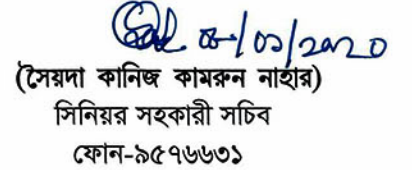 /০১/২০২০
(সৈয়দা কানিজ কামরুন নাহার)
সিনিয়র সহকারী সচিব
ফোন-৯৫৭৬৬৩১